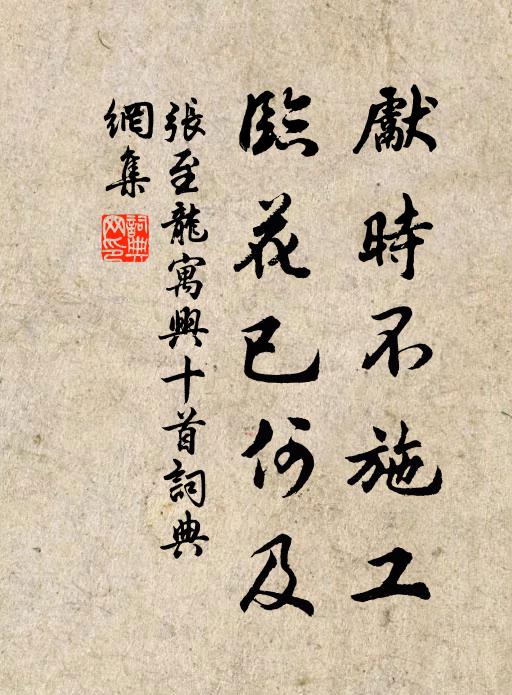 獻時不施工
臨花已何及
張至龍寓興十首詞典
網集
詞典
網印